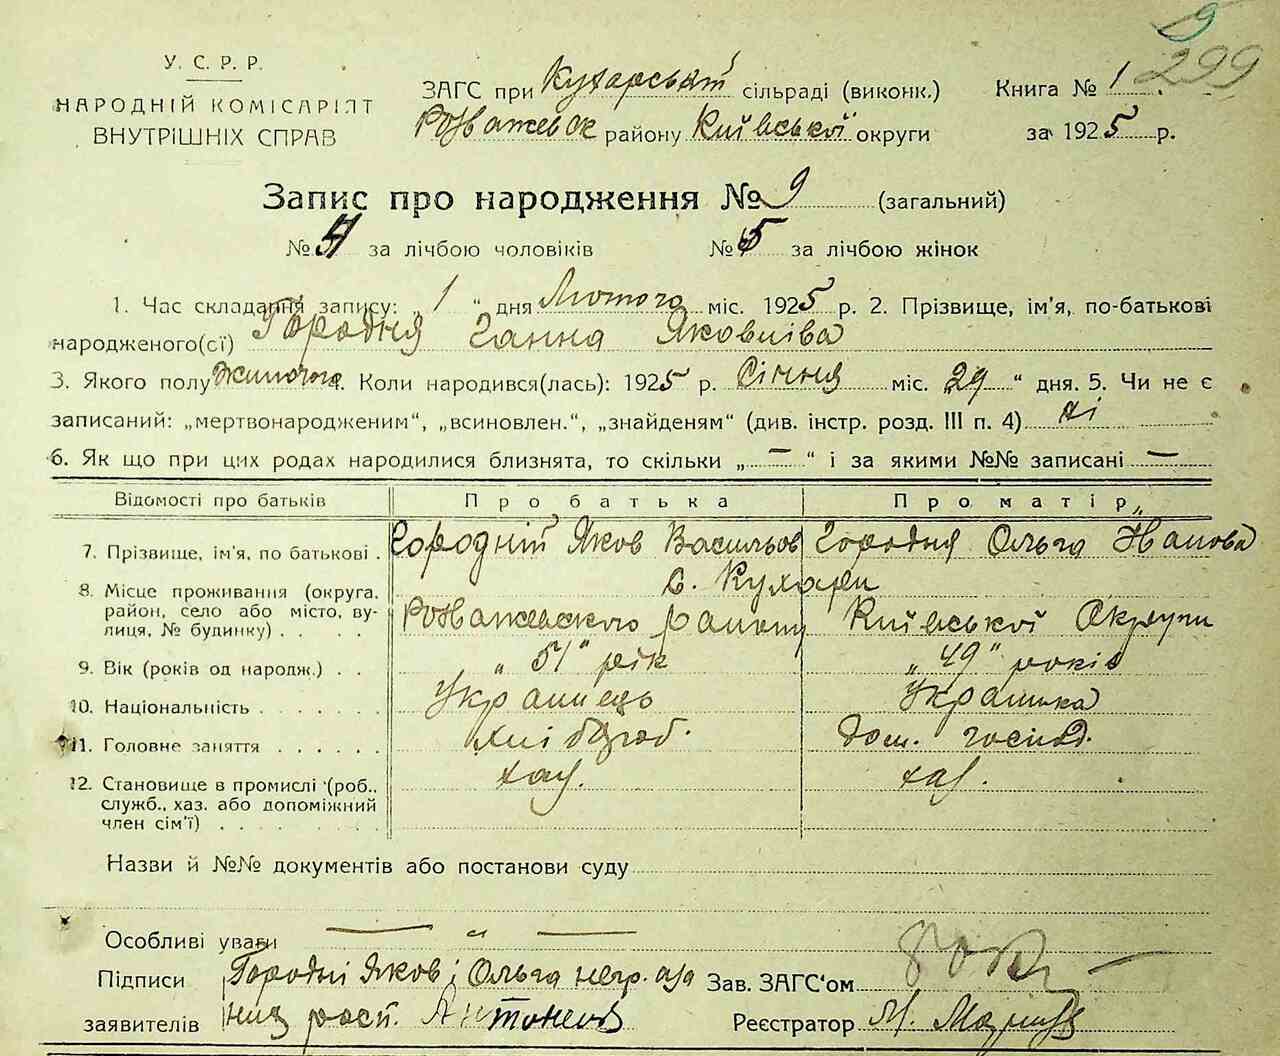 9
299
У. С. Р. Р.
НАРОДНІЙ КОМІСАРІЯТ
ВНУТРІШНІХ СПРАВ
ЗАГС при Кухарській сільраді (виконк.) Книга № 1
Розважевск району Київської округи за 1925 р.
Запис про народження № 9 (загальний)
№ 4 за лічбою чоловіків № 5 за лічбою жінок
1. Час складання запису: „ 1 “ дня Лютого міс. 1925 р. 2. Прізвище, ім'я, по-батькові
народженого(сї) Городня Ганна Яковлівa
3. Якого полу жиночого 4. Коли народився(лась): 1925 р. Січня міс. „29“ дня. 5. Чи не є
записаний: „мертвонародженим“, „всиновлен.“, „знайденям“ (див. інстр. розд. III п. 4) ні
6. Як що при цих родах народилися близнята, то скільки „ — “ і за якими №№ записані —
Відомості про батьків Про батька Про матір
7. Прізвище, ім'я, по батькові . Городній Яков Васильов Городня Ольга Иванова
с. Кухари
8. Місце проживання (округа, район, село або місто, вулиця, № будинку) . . . . . Розважевского району Київської Округи
9. Вік (років од народж.) . . „51“ рік „49“ років
10. Національність . . . . . . Українець Українка
11. Головне заняття . . . . . . хлібороб. дом. господ.
12. Становище в промислі (роб., служб., хаз. або допоміжний член сім'ї) . . . . . . . хаз. хаз.
Назви й №№ документів або постанови суду
Особливі уваги — „ —
Підписи Городні Яков і Ольга негр. а за Зав. ЗАГС'ом
заявителів них росп. Реєстратор М.